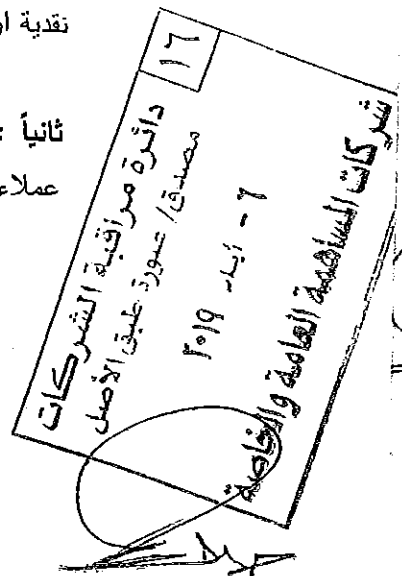 نقدية أو
ثانياً :
عملاء
١٦
دائرة مراقبة الشركات
مصدق/ صورة طبق الأصل
٦ - أيار ٢٠١٩
شركات المساهمة العامة والخاصة